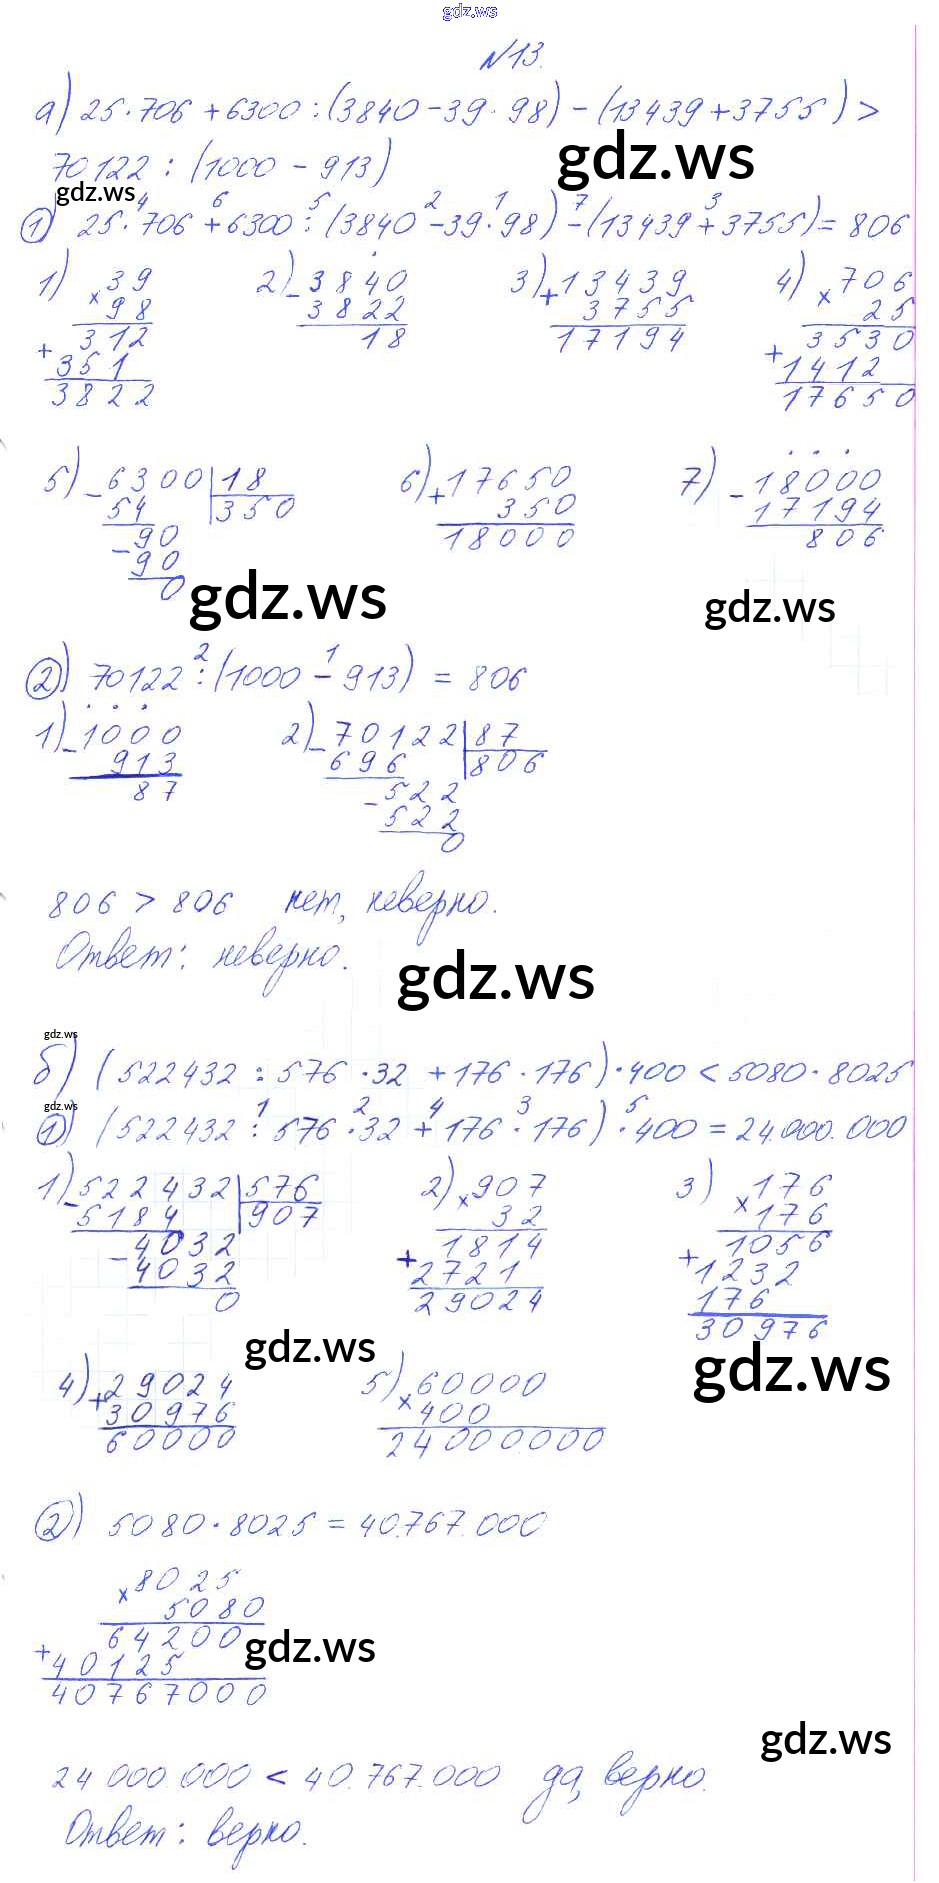 gdz.ws
№13.
а) 25·706 + 6300 : (3840 - 39·98) - (13439 + 3755) >
70122 : (1000 - 913)
gdz.ws
gdz.ws
4 6 5 2 1 7 3
1) 25·706 + 6300 : (3840 - 39·98) - (13439 + 3755) = 806
1) × 39 2) - 3840 3) + 13439 4) × 706
98 3822 3755 25
312 18 17194 3530
+ 351 + 1412
3822 17650
5) - 6300 | 18 6) + 17650 7) - 18000
54 350 350 17194
- 90 18000 806
90
0
gdz.ws
gdz.ws
2 1
2) 70122 : (1000 - 913) = 806
1) - 1000 2) - 70122 | 87
913 696 806
87 - 522
522
0
806 > 806 нет, неверно.
Ответ: неверно.
gdz.ws
gdz.ws
б) (522432 : 576 · 32 + 176 · 176) · 400 < 5080 · 8025
gdz.ws
1 2 4 3 5
1) (522432 : 576 · 32 + 176 · 176) · 400 = 24.000.000
1) - 522432 | 576 2) × 907 3) × 176
5184 907 32 176
- 4032 1814 1056
4032 + 2721 + 1232
0 29024 176
30976
gdz.ws
gdz.ws
4) + 29024 5) × 60000
30976 400
60000 24000000
2) 5080 · 8025 = 40.767.000
× 8025
5080
64200
+ 40125
40767000
gdz.ws
gdz.ws
24 000.000 < 40.767.000 да, верно.
Ответ: верно.